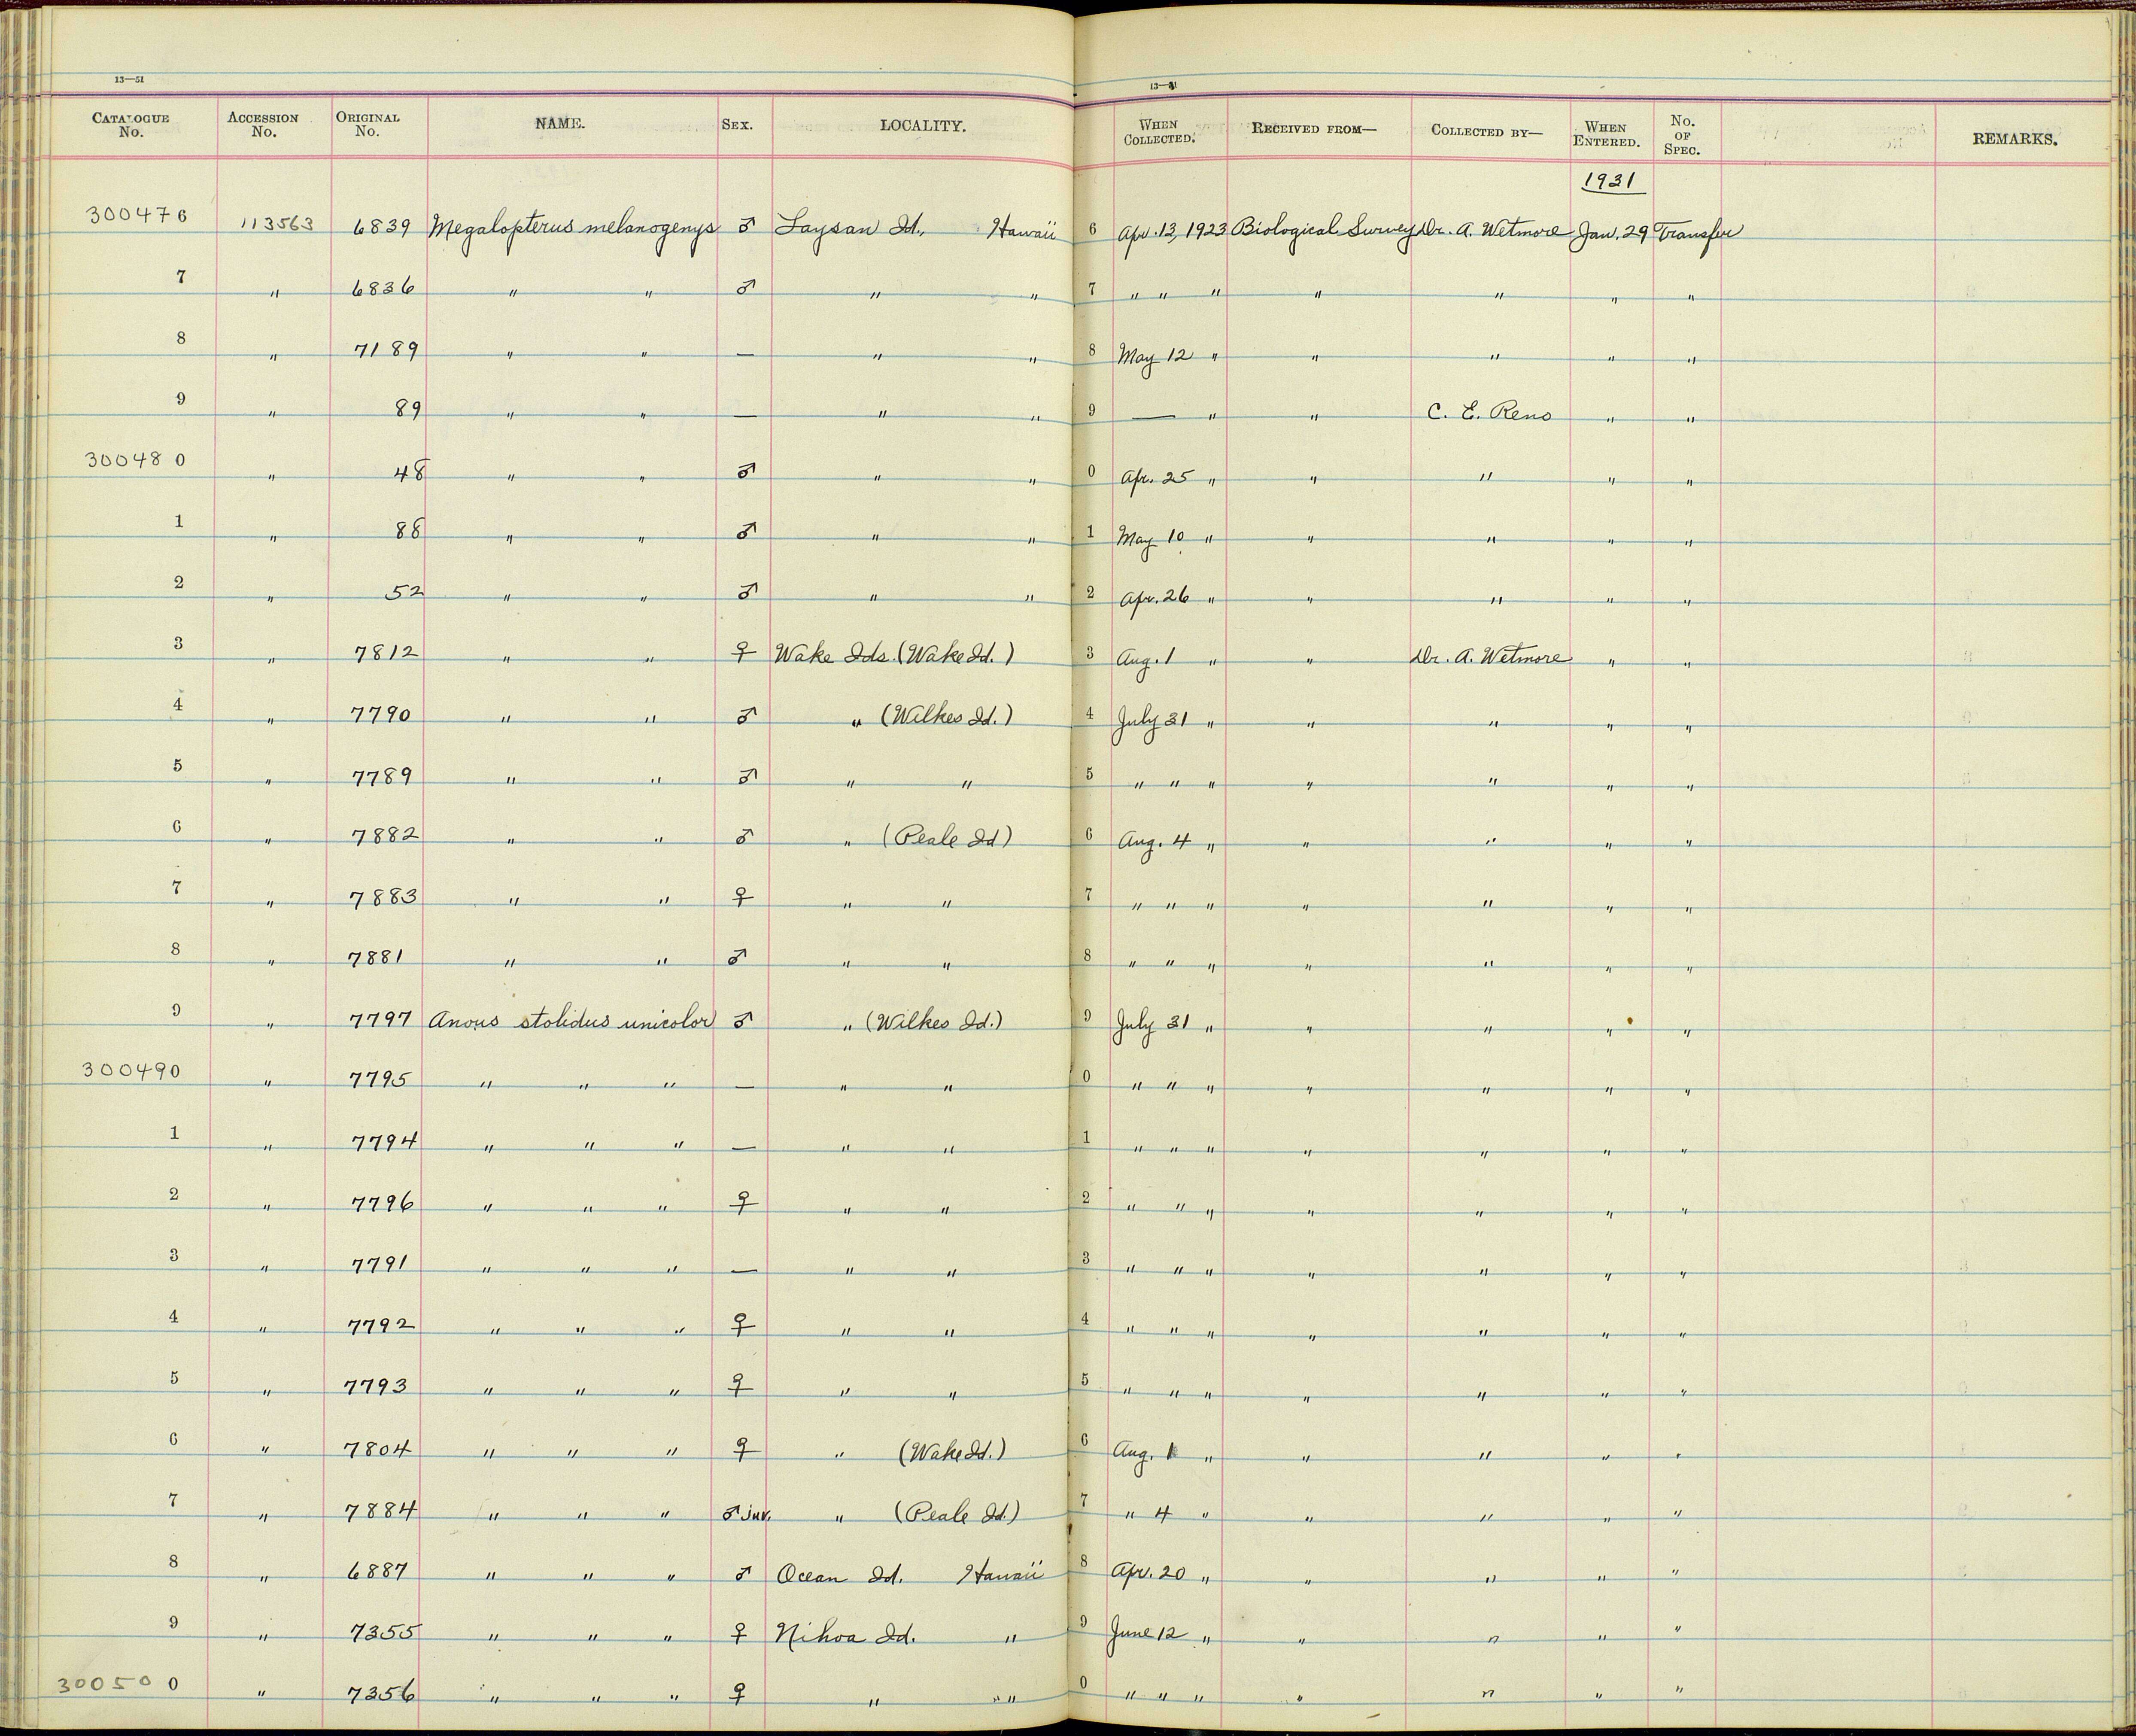 13—51
13—51
CATALOGUE No. ACCESSION No. ORIGINAL No. NAME. SEX. LOCALITY. WHEN COLLECTED. RECEIVED FROM— COLLECTED BY— WHEN ENTERED. No. OF SPEC. REMARKS.
1931
300476 113563 6839 Megalopterus melanogenys ♂ Laysan Id., Hawaii 6 Apr. 13, 1923 Biological Survey Dr. A. Wetmore Jan. 29 Transfer
7 " 6836 " " ♂ " " 7 " " " " " " "
8 " 7189 " " — " " 8 May 12 " " " " "
9 " 89 " " — " " 9 — " " C. E. Reno " "
300480 " 48 " " ♂ " " 0 Apr. 25 " " " " "
1 " 88 " " ♂ " " 1 May 10 " " " " "
2 " 52 " " ♂ " " 2 Apr. 26 " " " " "
3 " 7812 " " ♀ Wake Ids. (Wake Id.) 3 Aug. 1 " " Dr. A. Wetmore " "
4 " 7790 " " ♂ " (Wilkes Id.) 4 July 31 " " " " "
5 " 7789 " " ♂ " " 5 " " " " " " "
6 " 7882 " " ♂ " (Peale Id) 6 Aug. 4 " " " " "
7 " 7883 " " ♀ " " 7 " " " " " " "
8 " 7881 " " ♂ " " 8 " " " " " " "
9 " 7797 Anous stolidus unicolor ♂ " (Wilkes Id.) 9 July 31 " " " " "
300490 " 7795 " " " — " " 0 " " " " " " "
1 " 7794 " " " — " " 1 " " " " " " "
2 " 7796 " " " ♀ " " 2 " " " " " " "
3 " 7791 " " " — " " 3 " " " " " " "
4 " 7792 " " " ♀ " " 4 " " " " " " "
5 " 7793 " " " ♀ " " 5 " " " " " " "
6 " 7804 " " " ♀ " (Wake Id.) 6 Aug. 1 " " " " "
7 " 7884 " " " ♂ juv. " (Peale Id.) 7 " 4 " " " " "
8 " 6887 " " " ♂ Ocean Id. Hawaii 8 Apr. 20 " " " " "
9 " 7355 " " " ♀ Nihoa Id. " 9 June 12 " " " " "
300500 " 7356 " " " ♀ " " " 0 " " " " " " "